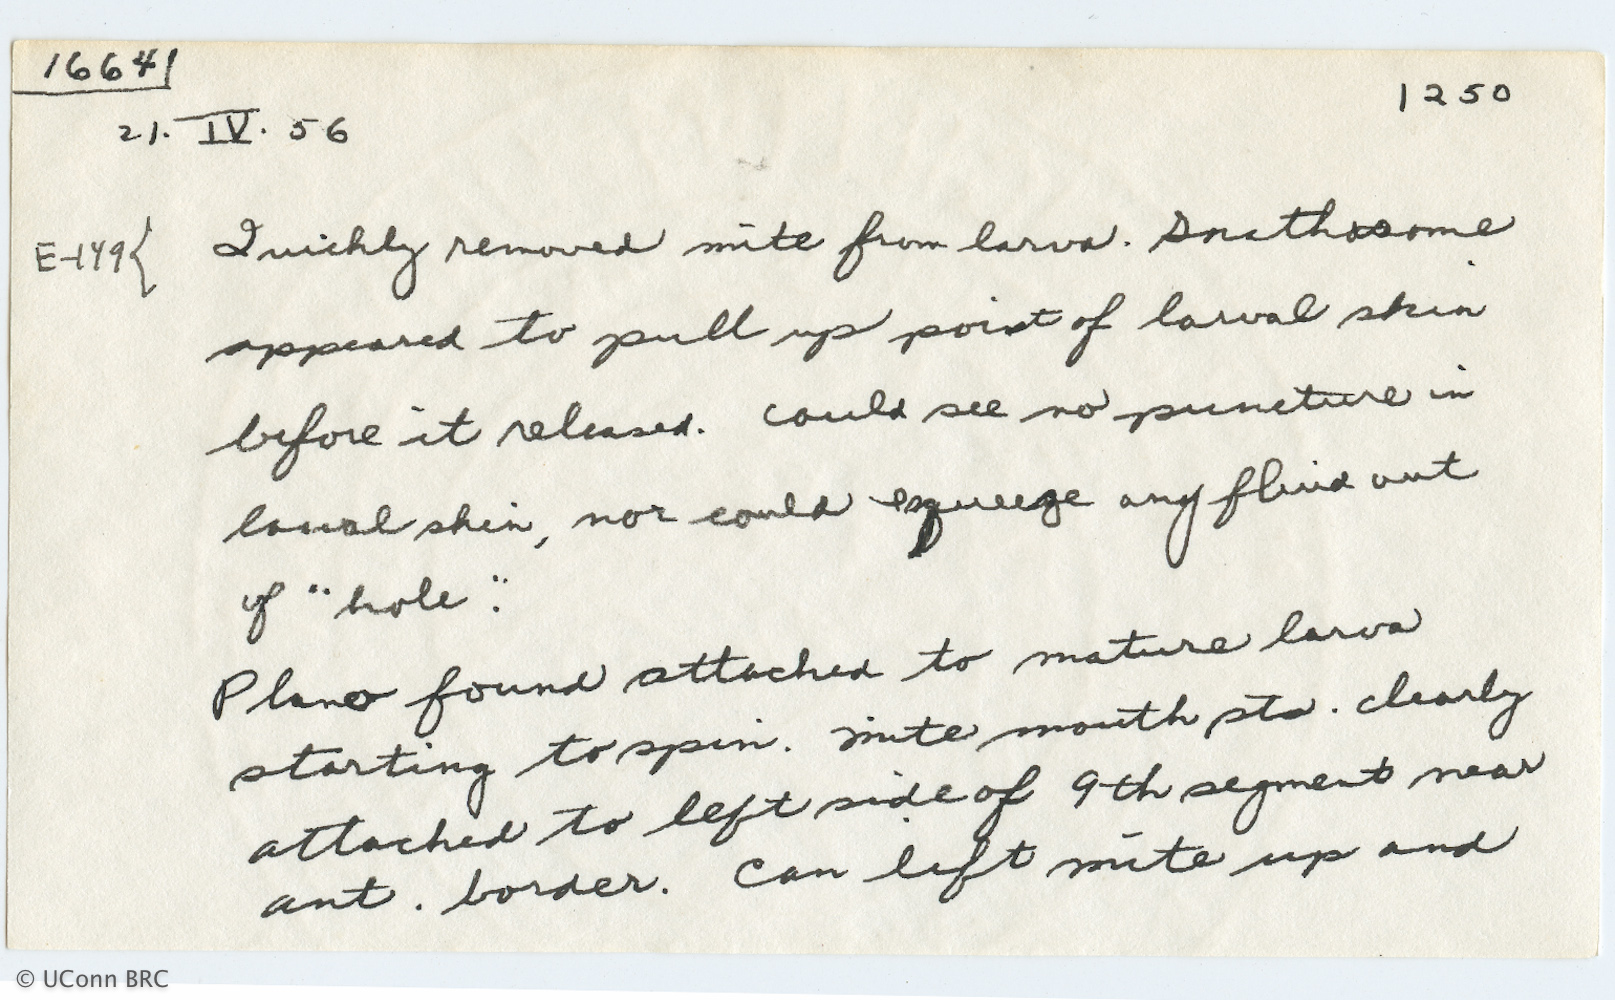 16641
1250
21. IV. 56
E-149{ Quickly removed mite from larva. Gnathosome
appeared to pull up point of larval skin
before it released. Could see no puncture in
larval skin, nor could squeeze any fluid out
of "hole".
found attached to mature larva
starting to spin. Mite mouth pts. clearly
attached to left side of 9th segment near
ant. border. Can lift mite up and
© UConn BRC